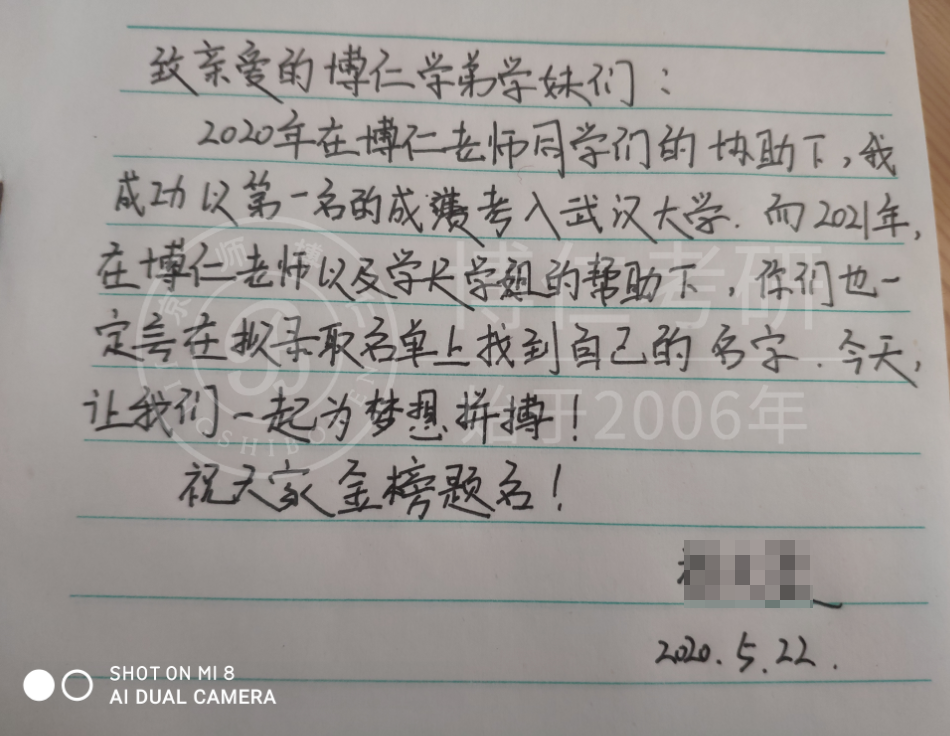 致亲爱的博仁学弟学妹们：
2020年在博仁老师同学们的协助下，我
成功以第一名的成绩考入武汉大学. 而2021年，
在博仁老师以及学长学姐的帮助下，你们也一
定会在拟录取名单上找到自己的名字. 今天，
让我们一起为梦想拼搏！
祝大家金榜题名！
2020.5.22.
博仁考研
始于2006年
SHOT ON MI 8
AI DUAL CAMERA